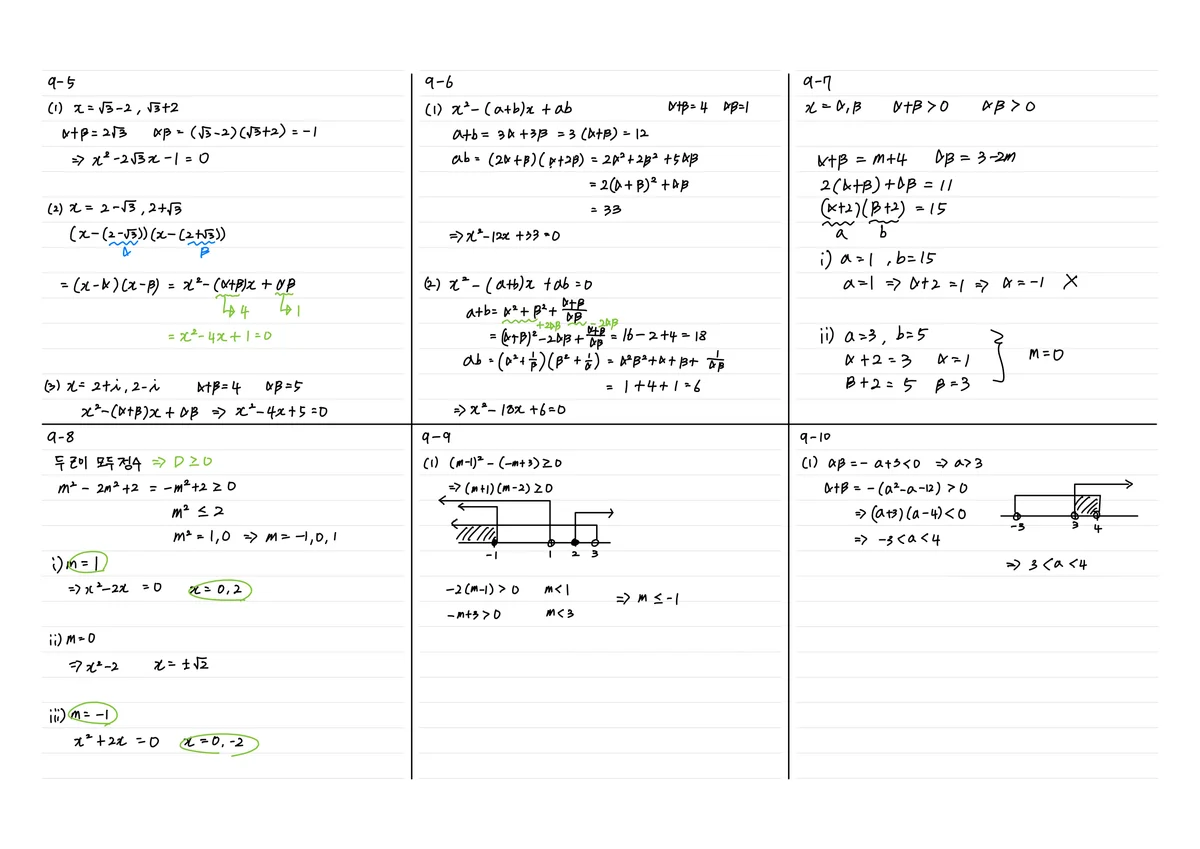 9-5
(1) x = √3-2, √3+2
α+β = 2√3 αβ = (√3-2)(√3+2) = -1
⇒ x²-2√3x-1=0
(2) x = 2-√3, 2+√3
(x-(2-√3))(x-(2+√3))
α β
=(x-α)(x-β) = x²-(α+β)x+αβ
↳4 ↳1
= x²-4x+1=0
(3) x=2+i, 2-i α+β=4 αβ=5
x²-(α+β)x+αβ ⇒ x²-4x+5=0
9-6
(1) x²-(a+b)x+ab α+β=4 αβ=1
a+b = 3α+3β = 3(α+β) = 12
ab = (2α+β)(α+2β) = 2α²+2β²+5αβ
= 2(α+β)²+αβ
= 33
⇒ x²-12x+33=0
(2) x²-(a+b)x+ab=0
a+b = α²+β²+(α+β)/αβ
+2αβ -2αβ
= (α+β)²-2αβ+(α+β)/αβ = 16-2+4 = 18
ab = (α²+1/β)(β²+1/α) = α²β²+α+β+1/αβ
= 1+4+1=6
⇒ x²-18x+6=0
9-7
x=α,β α+β>0 αβ>0
α+β = m+4 αβ = 3-2m
2(α+β)+αβ = 11
(α+2)(β+2) = 15
a b
i) a=1, b=15
a=1 ⇒ α+2=1 ⇒ α=-1 X
ii) a=3, b=5
α+2=3 α=1 m=0
β+2=5 β=3
9-8
두 근이 모두 정수 ⇒ D≥0
m²-2m²+2 = -m²+2≥0
m²≤2
m²=1,0 ⇒ m=-1,0,1
i) m=1
⇒ x²-2x=0 x=0,2
ii) m=0
⇒ x²-2 x=±√2
iii) m=-1
x²+2x=0 x=0,-2
9-9
(1) (m-1)²-(-m+3)≥0
⇒ (m+1)(m-2)≥0
-1 1 2 3
-2(m-1)>0 m<1 ⇒ m≤-1
-m+3>0 m<3
9-10
(1) αβ=-a+3<0 ⇒ a>3
α+β=-(a²-a-12)>0
⇒ (a+3)(a-4)<0
-3 3 4
⇒ -3<a<4
⇒ 3<a<4